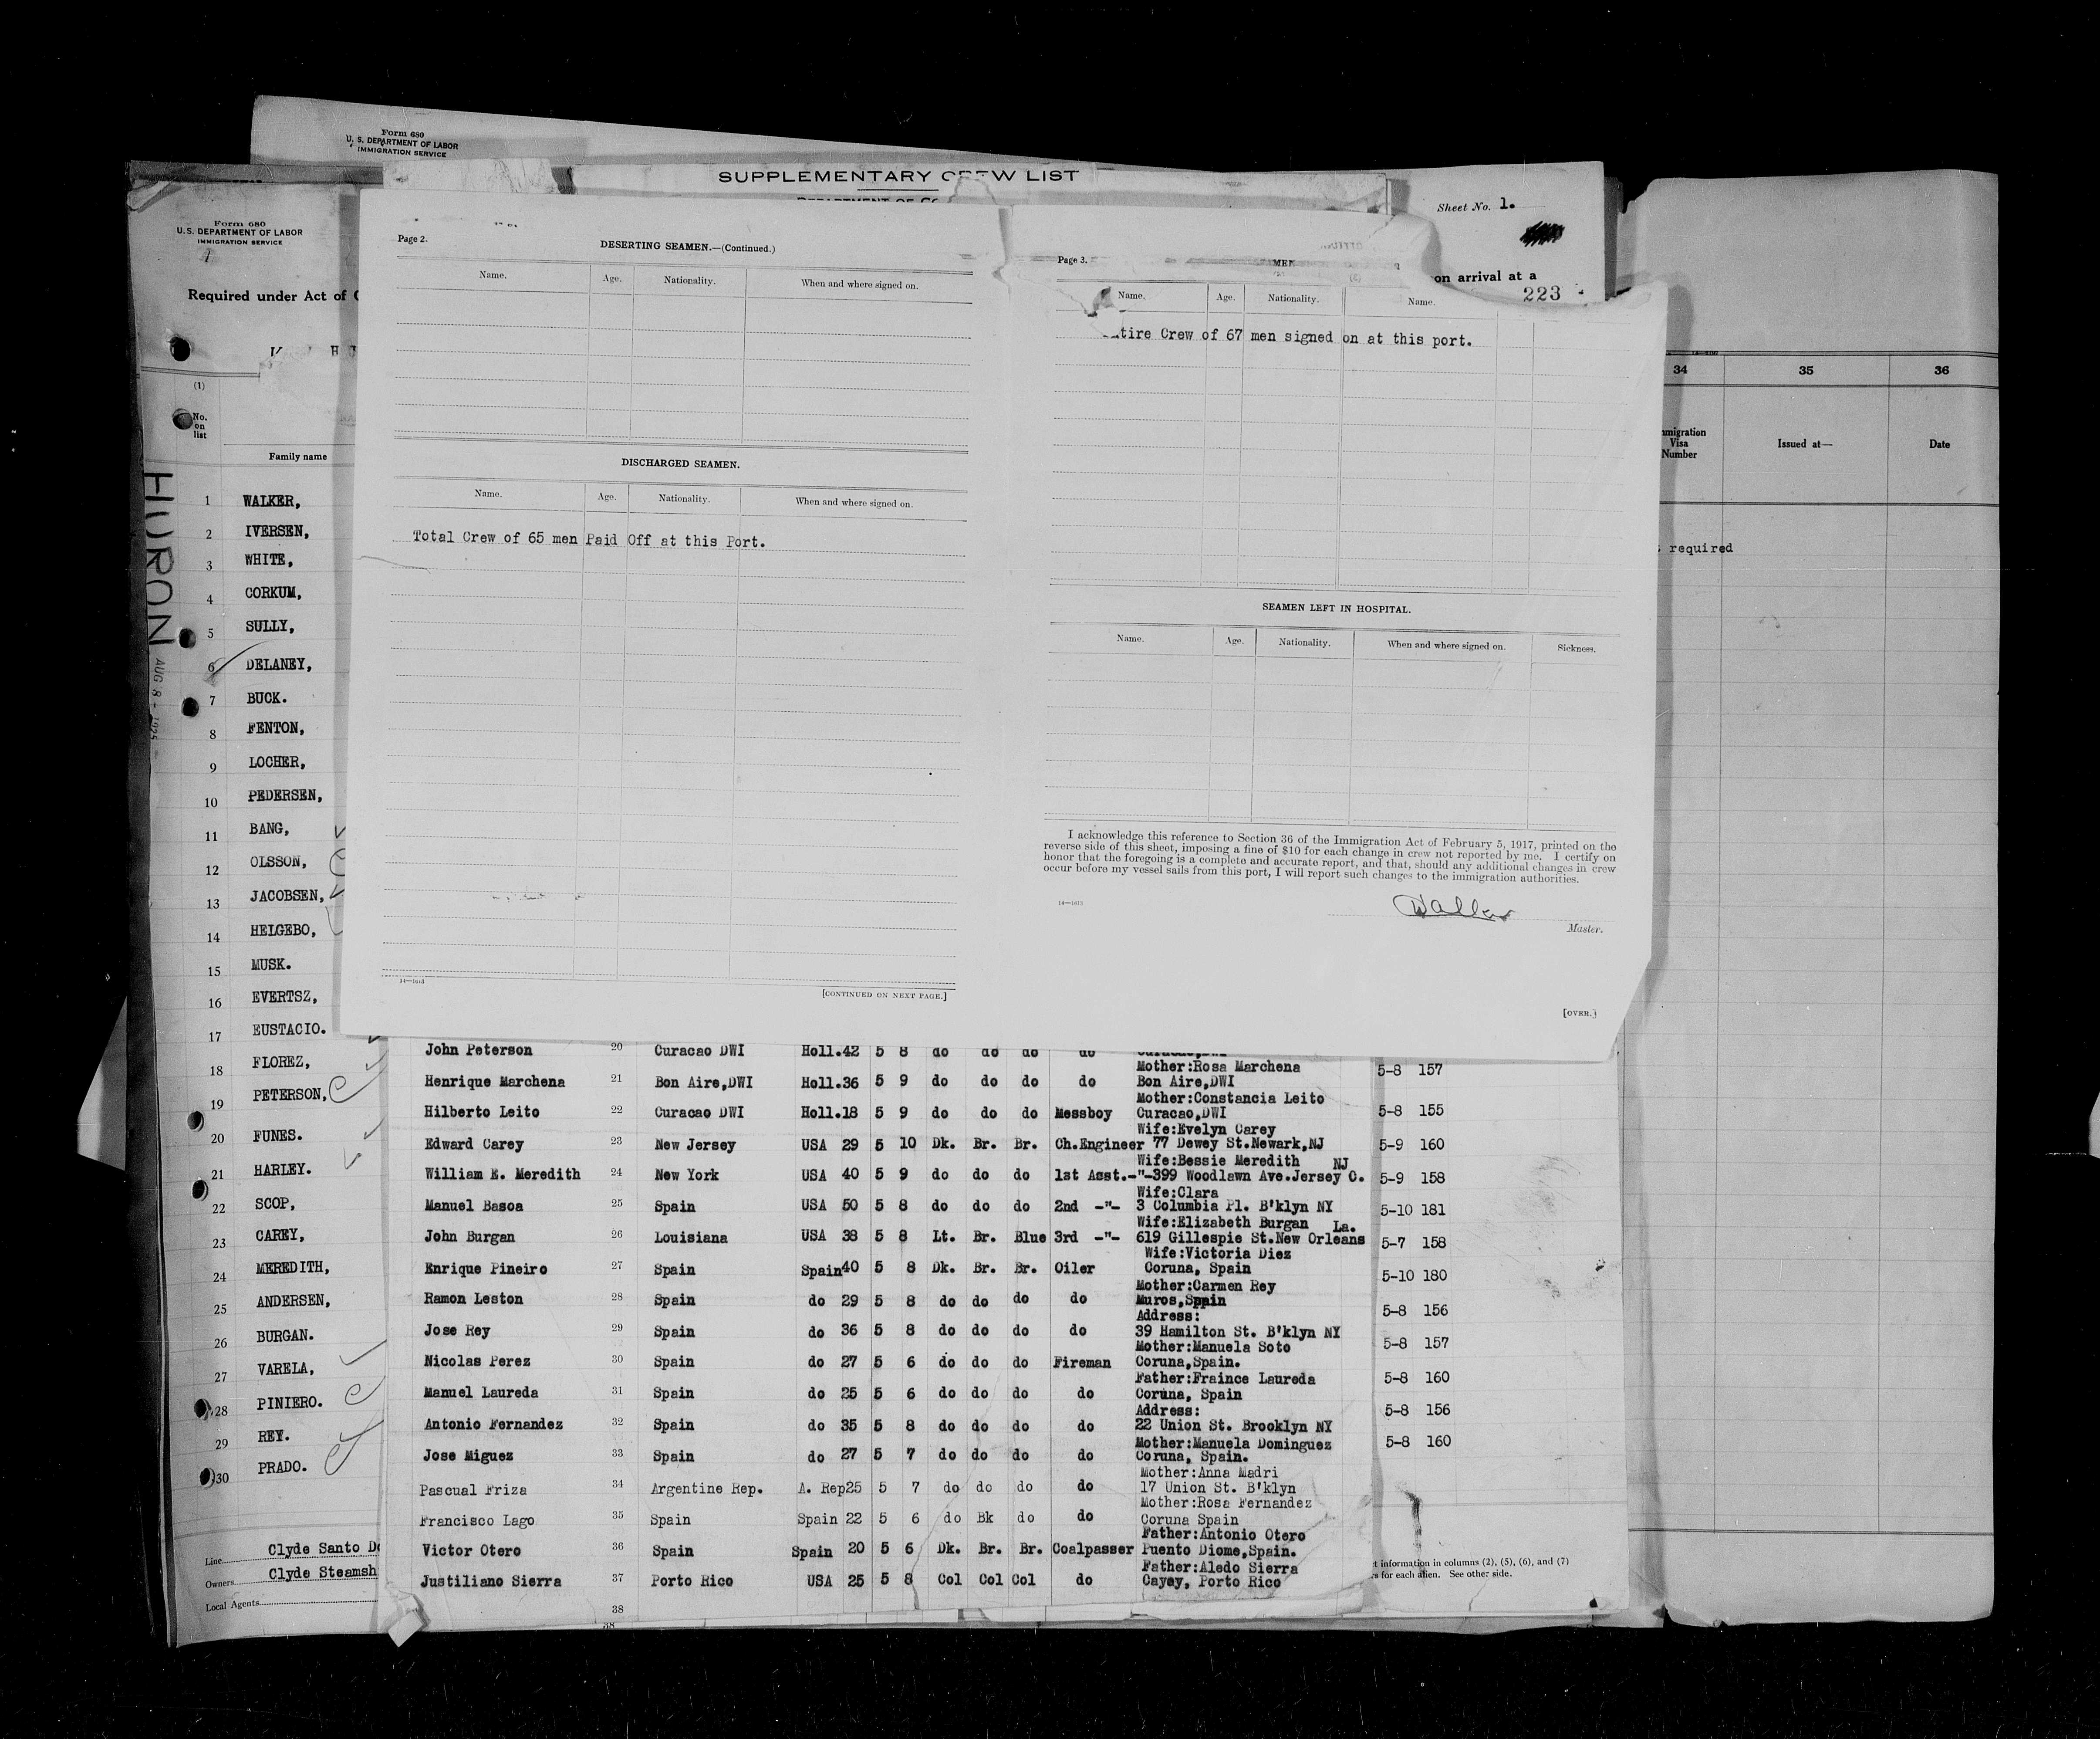 Form 680
U. S. DEPARTMENT OF LABOR
IMMIGRATION SERVICE
SUPPLEMENTARY CREW LIST
Sheet No. 1.
on arrival at a
223
Form 680
U. S. DEPARTMENT OF LABOR
IMMIGRATION SERVICE
Required under Act of
(1)
No. on list
Family name
HURON
AUG 8 - 1925
1 WALKER,
2 IVERSEN,
3 WHITE,
4 CORKUM,
5 SULLY,
6 DELANEY,
7 BUCK.
8 FENTON,
9 LOCHER,
10 PEDERSEN,
11 BANG,
12 OLSSON,
13 JACOBSEN,
14 HELGEBO,
15 MUSK.
16 EVERTSZ,
17 EUSTACIO.
18 FLOREZ,
19 PETERSON,
20 FUNES.
21 HARLEY.
22 SCOP,
23 CAREY,
24 MEREDITH,
25 ANDERSEN,
26 BURGAN.
27 VARELA,
28 PINIERO.
29 REY.
30 PRADO.
Line Clyde Santo Do
Owners Clyde Steamsh
Local Agents
Page 2.
DESERTING SEAMEN.—(Continued.)
Name. Age. Nationality. When and where signed on.
DISCHARGED SEAMEN.
Name. Age. Nationality. When and where signed on.
Total Crew of 65 men Paid Off at this Port.
14—1613
[CONTINUED ON NEXT PAGE.]
Page 3.
Name. Age. Nationality. Name.
tire Crew of 67 men signed on at this port.
SEAMEN LEFT IN HOSPITAL.
Name. Age. Nationality. When and where signed on. Sickness.
I acknowledge this reference to Section 36 of the Immigration Act of February 5, 1917, printed on the
reverse side of this sheet, imposing a fine of $10 for each change in crew not reported by me. I certify on
honor that the foregoing is a complete and accurate report, and that, should any additional changes in crew
occur before my vessel sails from this port, I will report such changes to the immigration authorities.
14—1613
Master.
[OVER.]
John Peterson 20 Curacao DWI Holl.42 5 8 do do do do
Mother:Rosa Marchena
Henrique Marchena 21 Bon Aire,DWI Holl.36 5 9 do do do do Bon Aire,DWI
Mother:Constancia Leito
Hilberto Leito 22 Curacao DWI Holl.18 5 9 do do do Messboy Curacao,DWI
Wife:Evelyn Carey
Edward Carey 23 New Jersey USA 29 5 10 Dk. Br. Br. Ch.Engineer 77 Dewey St.Newark,NJ
Wife:Bessie Meredith NJ
William E. Meredith 24 New York USA 40 5 9 do do do 1st Asst.-"-399 Woodlawn Ave.Jersey C.
Wife:Clara
Manuel Basoa 25 Spain USA 50 5 8 do do do 2nd -"- 3 Columbia Pl. B'klyn NY
Wife:Elizabeth Burgan La.
John Burgan 26 Louisiana USA 38 5 8 Lt. Br. Blue 3rd -"- 619 Gillespie St.New Orleans
Wife:Victoria Diez
Enrique Pineiro 27 Spain Spain40 5 8 Dk. Br. Br. Oiler Coruna, Spain
Mother:Carmen Rey
Ramon Leston 28 Spain do 29 5 8 do do do do Muros,Spain
Address:
Jose Rey 29 Spain do 36 5 8 do do do do 39 Hamilton St. B'klyn NY
Mother:Manuela Soto
Nicolas Perez 30 Spain do 27 5 6 do do do Fireman Coruna,Spain.
Father:Fraince Laureda
Manuel Laureda 31 Spain do 25 5 6 do do do do Coruna, Spain
Address:
Antonio Fernandez 32 Spain do 35 5 8 do do do do 22 Union St. Brooklyn NY
Mother:Manuela Dominguez
Jose Miguez 33 Spain do 27 5 7 do do do do Coruna, Spain.
Mother:Anna Madri
Pascual Friza 34 Argentine Rep. A. Rep25 5 7 do do do do 17 Union St. B'klyn
Mother:Rosa Fernandez
Francisco Lago 35 Spain Spain 22 5 6 do Bk do do Coruna Spain
Father:Antonio Otero
Victor Otero 36 Spain Spain 20 5 6 Dk. Br. Br. Coalpasser Puento Diome,Spain.
Father:Aledo Sierra
Justiliano Sierra 37 Porto Rico USA 25 5 8 Col Col Col do Cayey, Porto Rico
38
38
5-8 157
5-8 155
5-9 160
5-9 158
5-10 181
5-7 158
5-10 180
5-8 156
5-8 157
5-8 160
5-8 156
5-8 160
t information in columns (2), (5), (6), and (7)
for each alien. See other side.
34 35 36
Immigration Visa Number
Issued at—
Date
required